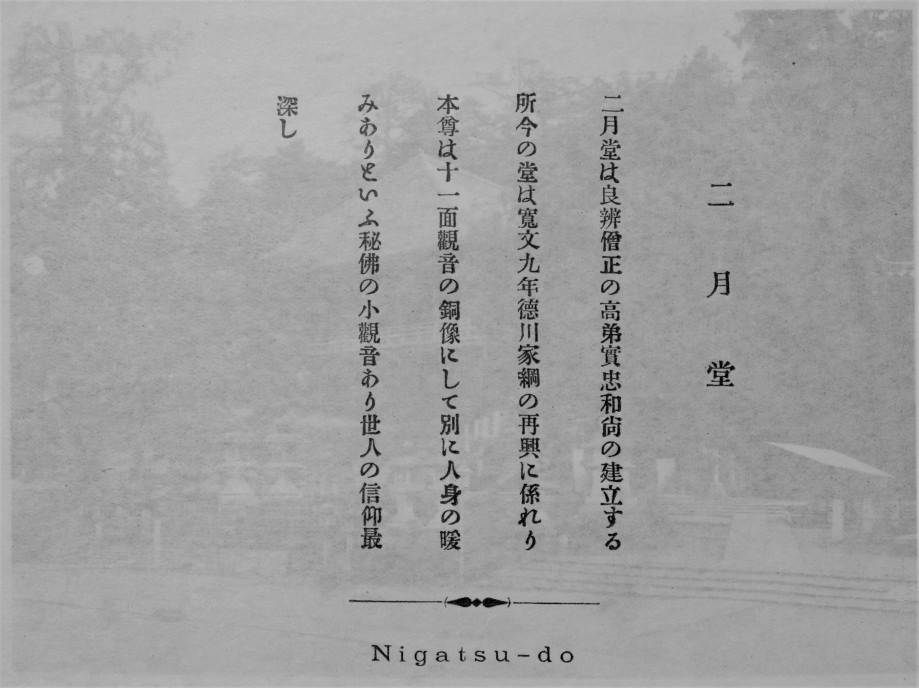 二月堂
二月堂は良辨僧正の高弟實忠和尙の建立する
所今の堂は寬文九年德川家綱の再興に係れり
本尊は十一面觀音の銅像にして別に人身の暖
みありといふ秘佛の小觀音あり世人の信仰最
深し
Nigatsu-do